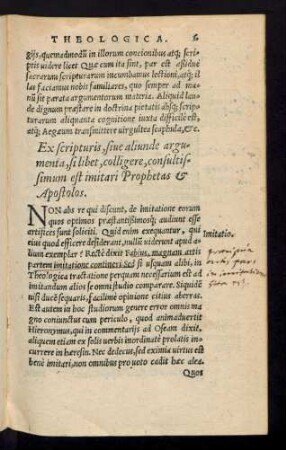 THEOLOGICA. 6
gijs, quemadmodũ in illorum concionibus atq; scri
ptis videre licet Quæ cum ita sint, par est assiduè
sacrarum scripturarum incumbamus lectioni, atq; il
las faciamus nobis familiares, quo semper ad ma-
nũ sit parata argumentorum materia. Aliquid lau-
de dignum præstare in doctrina pietatis absq; scriptu-
rarum aliquanta cognitione iuxta difficile est,
atq; Aegæum transmittere virgultea scaphula, &c.
Ex scripturis, siue aliunde argu-
menta, si libet, colligere, consultis-
simum est imitari Prophetas &
Apostolos.
NON abs re qui discunt, de imitatione eorum
quos optimos præstantissimosq; audiunt esse
artifices sunt soliciti. Quid enim exequantur, qui
eius quod efficere desiderant, nullũ viderunt apud
alium exemplar? Rectè dixit Fabius, magnam artis
partem imitatione contineri. Sed si usquam alibi, in
Theologica tractatione perquam necessarium est ad
imitandum alios se omni studio comparare. Siquidẽ
nisi ducẽ sequaris, facilimè opinione citius aberras.
Est autem in hoc studiorum genere error omnis ma
gno coniunctus cum periculo, quod animaduertit
Hieronymus, qui in commentarijs ad Oseam dixit,
aliquem etiam ex solis verbis inordinatè prolatis in-
currere in hæresin. Nec dedecus, sed eximia virtus est
benè imitari, non omnibus pro voto cedit hæc alea.
Quos
Imitatio.
artis pars
in imitatione